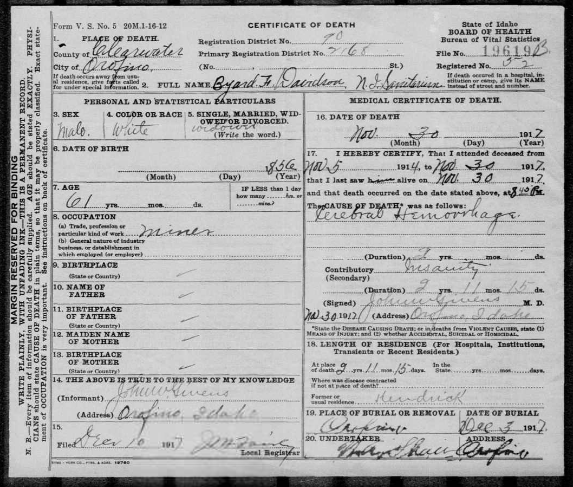 Form V. S. No. 5 20M.1-16-12
CERTIFICATE OF DEATH
State of Idaho
BOARD OF HEALTH
Bureau of Vital Statistics
1. PLACE OF DEATH
County of Clearwater
City of Orofino
Registration District No. 90
Primary Registration District No. 2168
(No. St.)
File No. 19619
Registered No. 52
If death occurs away from usual residence, give facts called for under special information.
2. FULL NAME Byard F. Davidson N.I. Sanitarium
If death occurred in a hospital, institution, or camp, give its NAME instead of street and number.
MARGIN RESERVED FOR BINDING
WRITE PLAINLY, WITH UNFADING INK—THIS IS A PERMANENT RECORD.
N. B.—Every item of information should be carefully supplied. AGE should be stated EXACTLY. PHYSICIANS should state CAUSE OF DEATH in plain terms, so that it may be properly classified. Exact statement of OCCUPATION is very important. See instructions on back of certificate.
PERSONAL AND STATISTICAL PARTICULARS
3. SEX
Male
4. COLOR OR RACE
White
5. SINGLE, MARRIED, WIDOWED OR DIVORCED.
(Write the word.)
6. DATE OF BIRTH
856
(Month) (Day) (Year)
7. AGE
61 yrs. mos. ds.
IF LESS than 1 day
how many hrs. or
min.?
8. OCCUPATION
(a) Trade, profession or particular kind of work Miner
(b) General nature of industry business, or establishment in which employed (or employer)
9. BIRTHPLACE
(State or Country)
10. NAME OF FATHER
11. BIRTHPLACE OF FATHER
(State or Country)
12. MAIDEN NAME OF MOTHER
13. BIRTHPLACE OF MOTHER
(State or Country)
14. THE ABOVE IS TRUE TO THE BEST OF MY KNOWLEDGE
(Informant) John W Givens
(Address) Orofino, Idaho
15.
Filed Dec 10 1917
Local Registrar
MEDICAL CERTIFICATE OF DEATH.
16. DATE OF DEATH
Nov. 30 1917
(Month) (Day) (Year)
17. I HEREBY CERTIFY, That I attended deceased from
Nov 5 1914, to Nov 30 1917
that I last saw alive on Nov 30 1917
and that death occurred on the date stated above, at
The CAUSE OF DEATH* was as follows:
Cerebral Hemorrhage
(Duration) 2 yrs. mos. ds.
Contributory Insanity
(Secondary)
(Duration) 2 yrs. 11 mos. 15 ds.
(Signed) John W Givens M. D.
Nov 30 1917 (Address) Orofino, Idaho
*State the DISEASE CAUSING DEATH; or in deaths from VIOLENT CAUSES, state (1) MEANS OF INJURY; and (2) whether ACCIDENTAL, SUICIDAL OR HOMICIDAL.
18. LENGTH OF RESIDENCE (For Hospitals, Institutions, Transients or Recent Residents.)
At place of death 2 yrs. 11 mos. 15 days. In the State yrs. mos. ds.
Where was disease contracted
if not at place of death?
Former or usual residence Kendrick
19. PLACE OF BURIAL OR REMOVAL
Orofino
DATE OF BURIAL
Dec 3 1917
20. UNDERTAKER
ADDRESS
Orofino